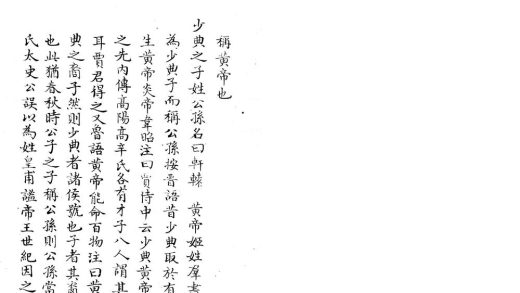 稱黄帝也
少典之子姓公孫名曰軒轅 黄帝姬姓羣書
為少典子而稱公孫按晋語昔少典取於有
生黄帝炎帝韋昭注曰賈侍中云少典黄帝
之先内傳高陽高辛氏各有才子八人謂其
耳賈君得之又魯語黄帝能命百物注曰黄
典之裔子然則少典者諸侯號也子者其裔
也此猶春秋時公子之子稱公孫則公孫當
氏太史公誤以為姓皇甫謐帝王世紀因之